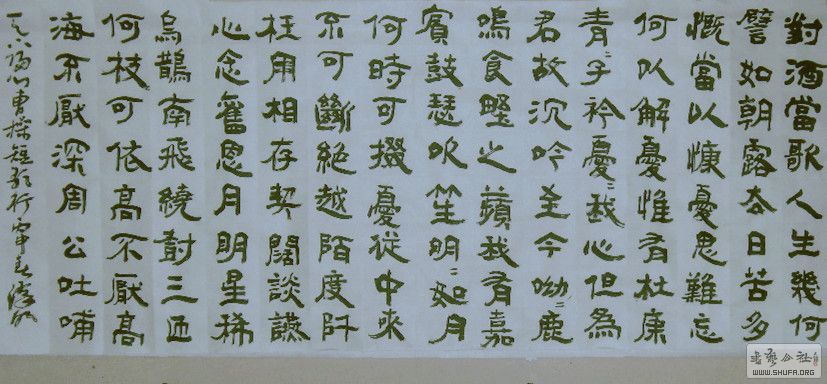 對酒當歌人生幾何
譬如朝露去日苦多
慨當以慷憂思難忘
何以解憂惟有杜康
青〻子衿憂〻我心但為
君故沉吟至今呦〻鹿
鳴食野之蘋我有嘉
賓鼓瑟吹笙明〻如月
何時可掇憂從中來
不可斷絕越陌度阡
枉用相存契闊談讌
心念舊恩月明星稀
烏鵲南飛繞樹三匝
何枝可依高不厭高
海不厭深周公吐哺
天下歸心曹操短歌行
WWW.SHUFA.ORG